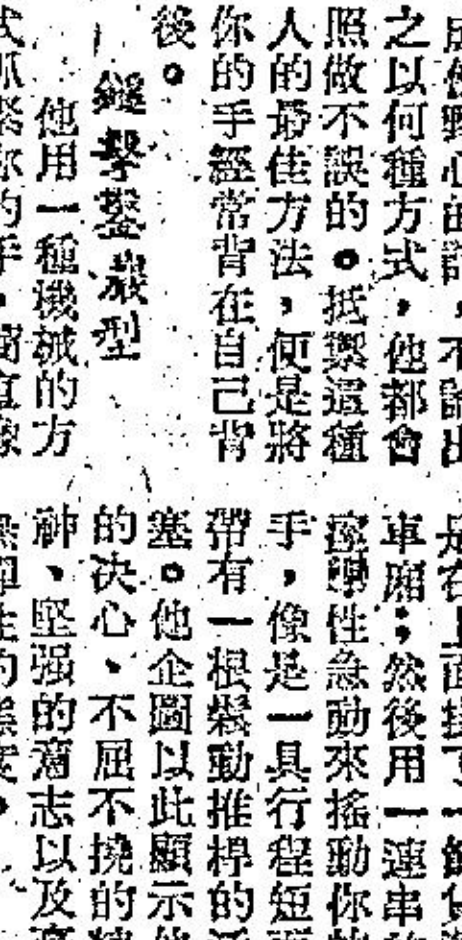 之以何種方式，他都會
照做不誤的。抵禦這種
人的最佳方法，便是將
你的手經常背在自己背
後。
型
他用一種機械的方
式抓緊你的手，簡直像
是在上面接了一節
車廂；然後用一連串
痙攣性急動來搖動你
手，像是一具行程短
帶有一根緊動推桿的
塞。他企圖以此顯示
的决心、不屈不撓的
神、堅强的意志以及
無彈性的態度。